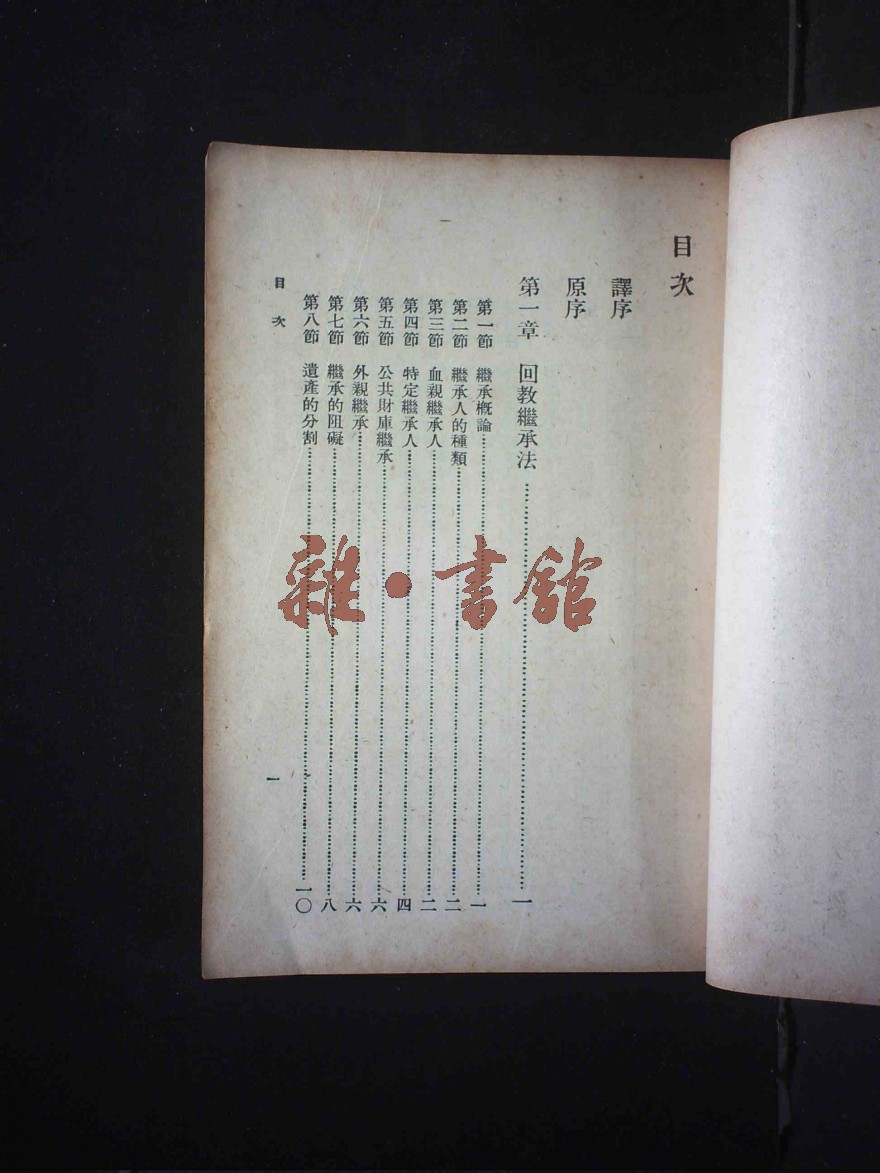 目次
譯序
原序
第一章 回教繼承法……一
第一節 繼承概論……一
第二節 繼承人的種類……二
第三節 血親繼承人……二
第四節 特定繼承人……四
第五節 公共財庫繼承……六
第六節 外親繼承……六
第七節 繼承的阻礙……八
第八節 遺產的分割……一〇
目次
一
雜·書館